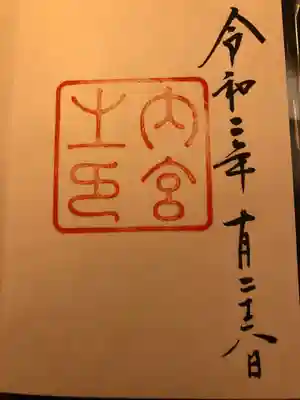 令和三年十月二十八日
内宮
之印